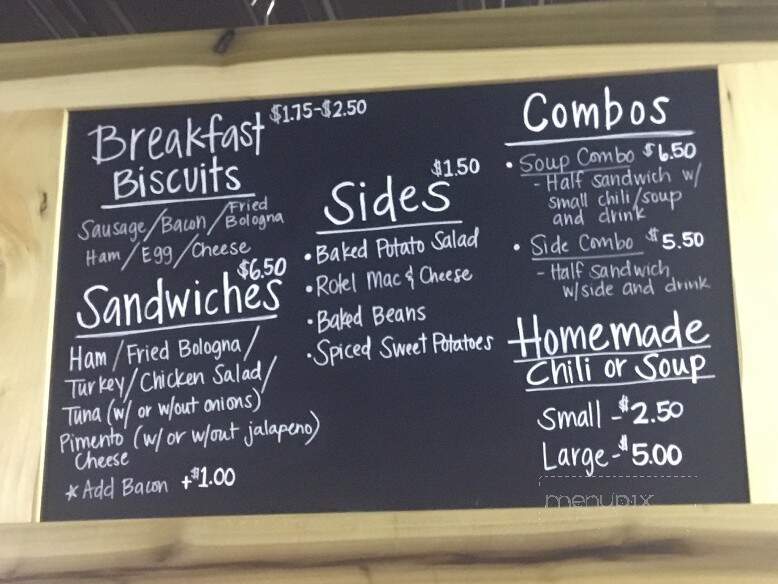 Breakfast $1.75-$2.50
Biscuits
Sausage/Bacon/Fried Bologna
Ham/Egg/Cheese
Sandwiches $6.50
Ham/Fried Bologna/
Turkey/Chicken Salad/
Tuna (w/ or w/out onions)
Pimento (w/ or w/out jalapeno)
Cheese
*Add Bacon +$1.00
Sides $1.50
•Baked Potato Salad
•Rotel Mac & Cheese
•Baked Beans
•Spiced Sweet Potatoes
Combos
•Soup Combo $6.50
-Half sandwich w/
small chili/soup
and drink
•Side Combo $5.50
-Half Sandwich
w/side and drink
Homemade
Chili or Soup
Small -$2.50
Large-$5.00
menupix